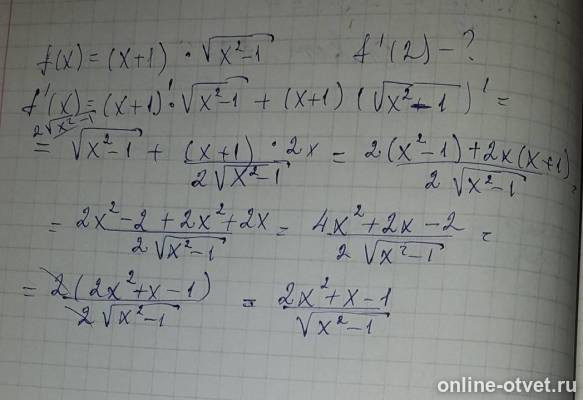 f(x) = (x+1) · √(x²-1)   f'(2) - ?
f'(x) = (x+1)' · √(x²-1) + (x+1) (√(x²-1))' =
2√(x²-1)
= √(x²-1) + (x+1) · 2x / 2√(x²-1) = 2(x²-1) + 2x(x+1) / 2√(x²-1) =
= 2x² - 2 + 2x² + 2x / 2√(x²-1) = 4x² + 2x - 2 / 2√(x²-1) =
= 2(2x² + x - 1) / 2√(x²-1) = 2x² + x - 1 / √(x²-1)
online-otvet.ru